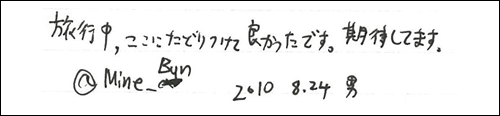 旅行中,ここにたどりつけて良かったです。期待してます。
@Mine_Byn 2010 8.24 男